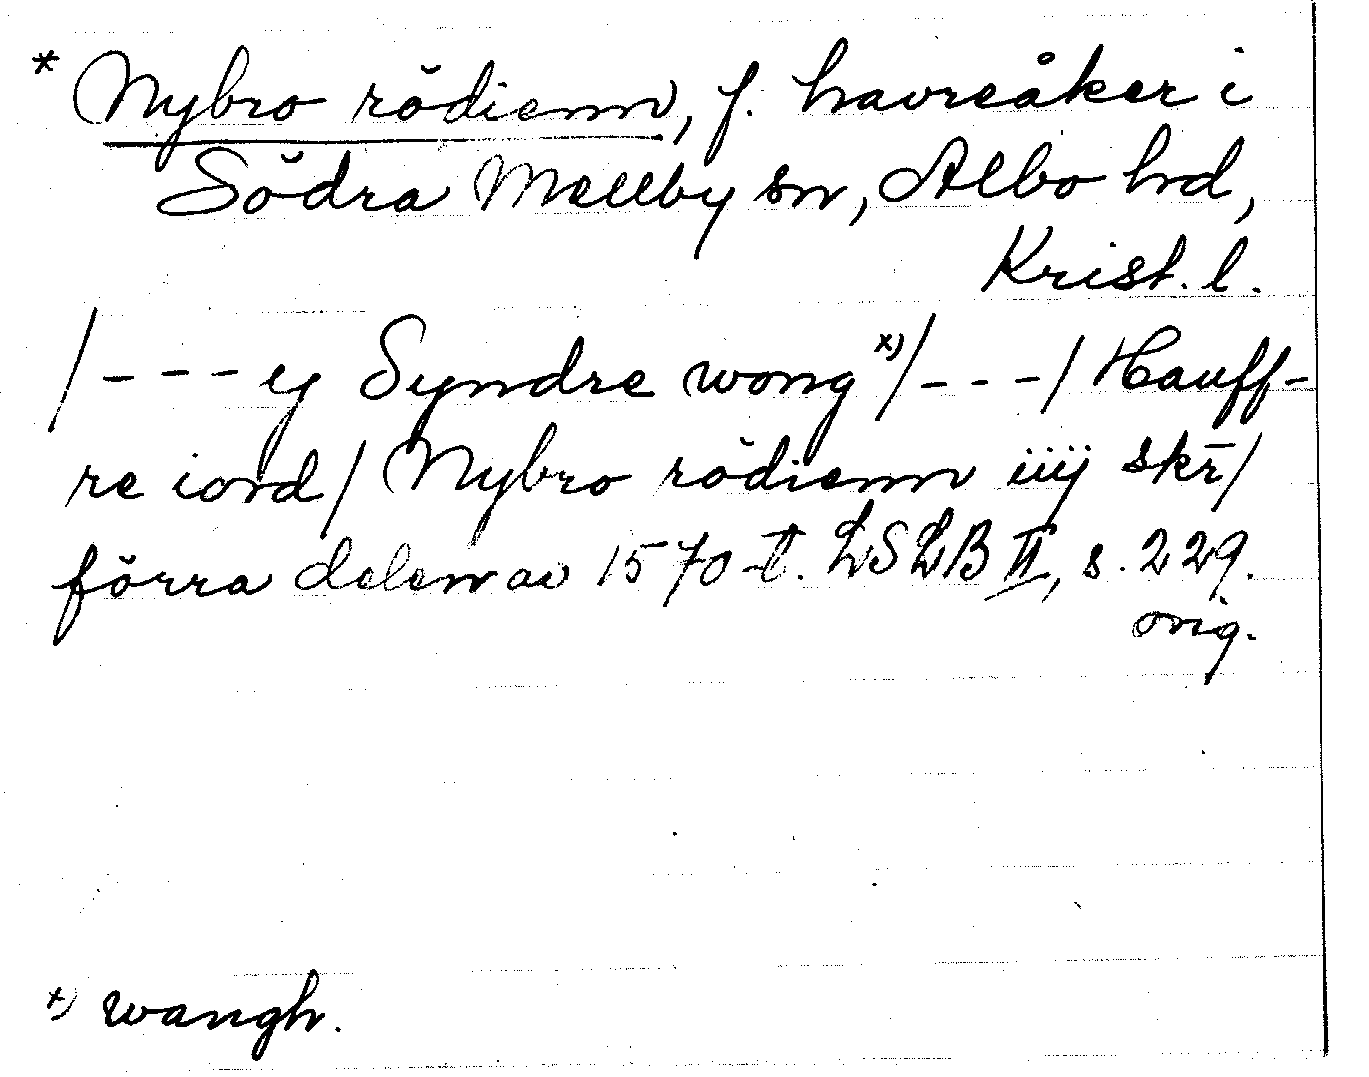 * Nybro rödienn, f. havreåker i
Södra Mellby sn, Albo hd,
Krist. l.
/ - - - ej Syndre wong x)/ - - - / Hauff-
re iord / Nybro rödienn iiij skr̄ /
förra delen av 1570-t. LSLB II, s. 229.
orig.
x) wangh.